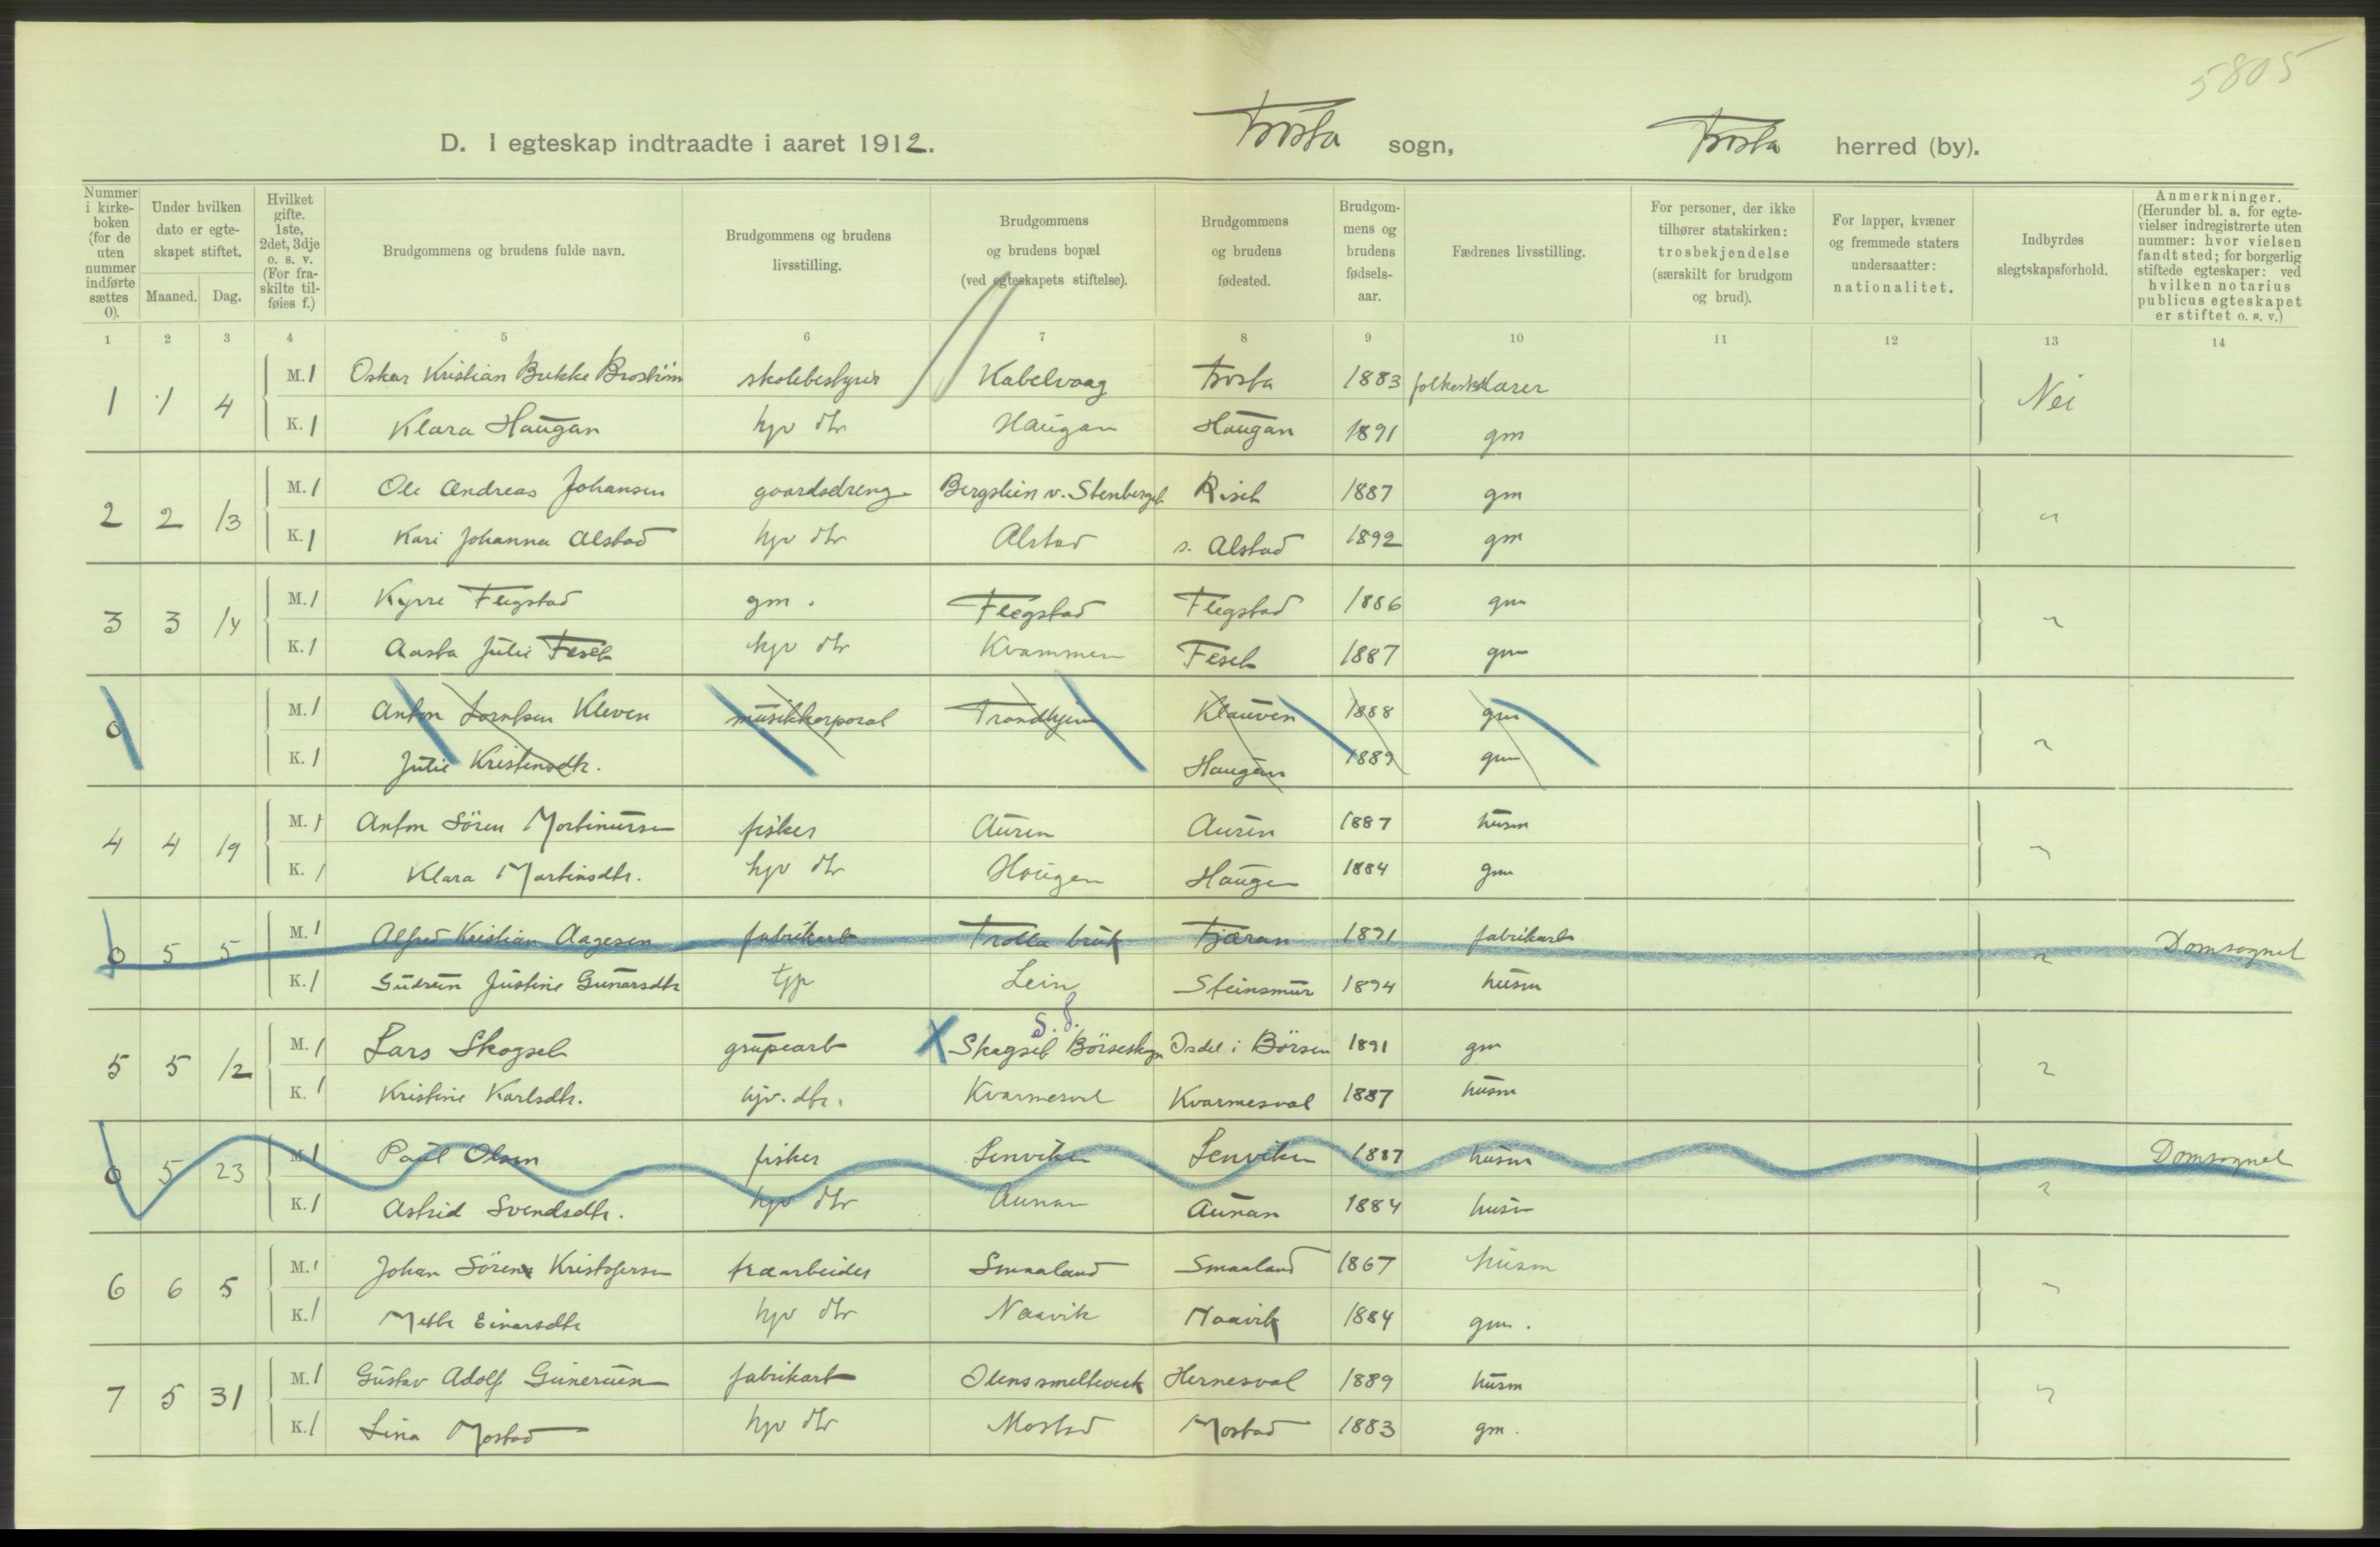 5805
D. I egteskap indtraadte i aaret 1912. Frosta sogn, Frosta herred (by).
Nummer i kirke-boken (for de uten nummer indførte sættes 0).
Under hvilken dato er egte-skapet stiftet.
Maaned. Dag.
Hvilket gifte. 1ste, 2det, 3dje o. s. v. (For fra-skilte til-føies f.)
Brudgommens og brudens fulde navn.
Brudgommens og brudens livsstilling.
Brudgommens og brudens bopæl (ved egteskapets stiftelse).
Brudgommens og brudens fødested.
Brudgom-mens og brudens fødsels-aar.
Fædrenes livsstilling.
For personer, der ikke tilhører statskirken: trosbekjendelse (særskilt for brudgom og brud).
For lapper, kvæner og fremmede staters undersaatter: nationalitet.
Indbyrdes slegtskapsforhold.
Anmerkninger. (Herunder bl. a. for egte-vielser indregistrerte uten nummer: hvor vielsen fandt sted; for borgerlig stiftede egteskaper: ved hvilken notarius publicus egteskapet er stiftet o. s. v.)
1 2 3 4 5 6 7 8 9 10 11 12 13 14
1 1 4 M. 1 Oskar Kristian Brekke Broström skolebestyrer Kabelvaag Frosta 1883 folkeskolelærer Nei
K. 1 Klara Haugan hjv dtr Haugan Haugan 1891 gm
2 2 13 M. 1 Ole Andreas Johansen gaardsdreng Bergslien v. Stenberget Riset 1887 gm "
K. 1 Kari Johanna Alstad hjv dtr Alstad s. Alstad 1892 gm
3 3 14 M. 1 Kyrre Flegstad gm. Flegstad Flegstad 1886 gm "
K. 1 Aasta Julie Feset hjv dtr Kvammen Feset 1887 gm
0 M. 1 Anton Lorntsen Kleven musikkorporal Trondhjem Klauven 1888 gm "
K. 1 Julie Kristensdtr. Haugan 1889 gm
4 4 19 M. 1 Anton Sören Mortinussen fisker Auren Auren 1887 husm "
K. 1 Klara Martinsdtr. hjv dtr Haugen Haugen 1884 gm
0 5 5 M. 1 Alfred Kristian Aagesen fabrikarb Trolla bruk Tjæran 1891 fabrikarb " Domsognet
K. 1 Gudrun Justine Gunarsdtr tjp Lein Steinsmur 1894 husm
S. J.
5 5 12 M. 1 Lars Skogset grupearb X Skogset Börseskogn Isdel i Börsen 1891 gm "
K. 1 Kristine Karlsdtr. hjv. dtr. Kvarmesval Kvarmesval 1887 husm
0 5 23 M 1 Paul Olsen fisker Lenviken Lenviken 1887 husm " Domsognet
K. 1 Astrid Svendsdtr. hjv dtr Aunan Aunan 1884 husm
6 6 5 M. 1 Johan Sören Kristofersen træarbeider Smaaland Smaaland 1867 husm "
K. 1 Mette Einarsdtr hjv dtr Naavik Naavik 1884 gm.
7 5 31 M. 1 Gustav Adolf Guneriusen fabrikarb Ilens smelteverk Hernesval 1889 husm "
K. 1 Lina Mostad hjv dtr Mostad Mostad 1883 gm.